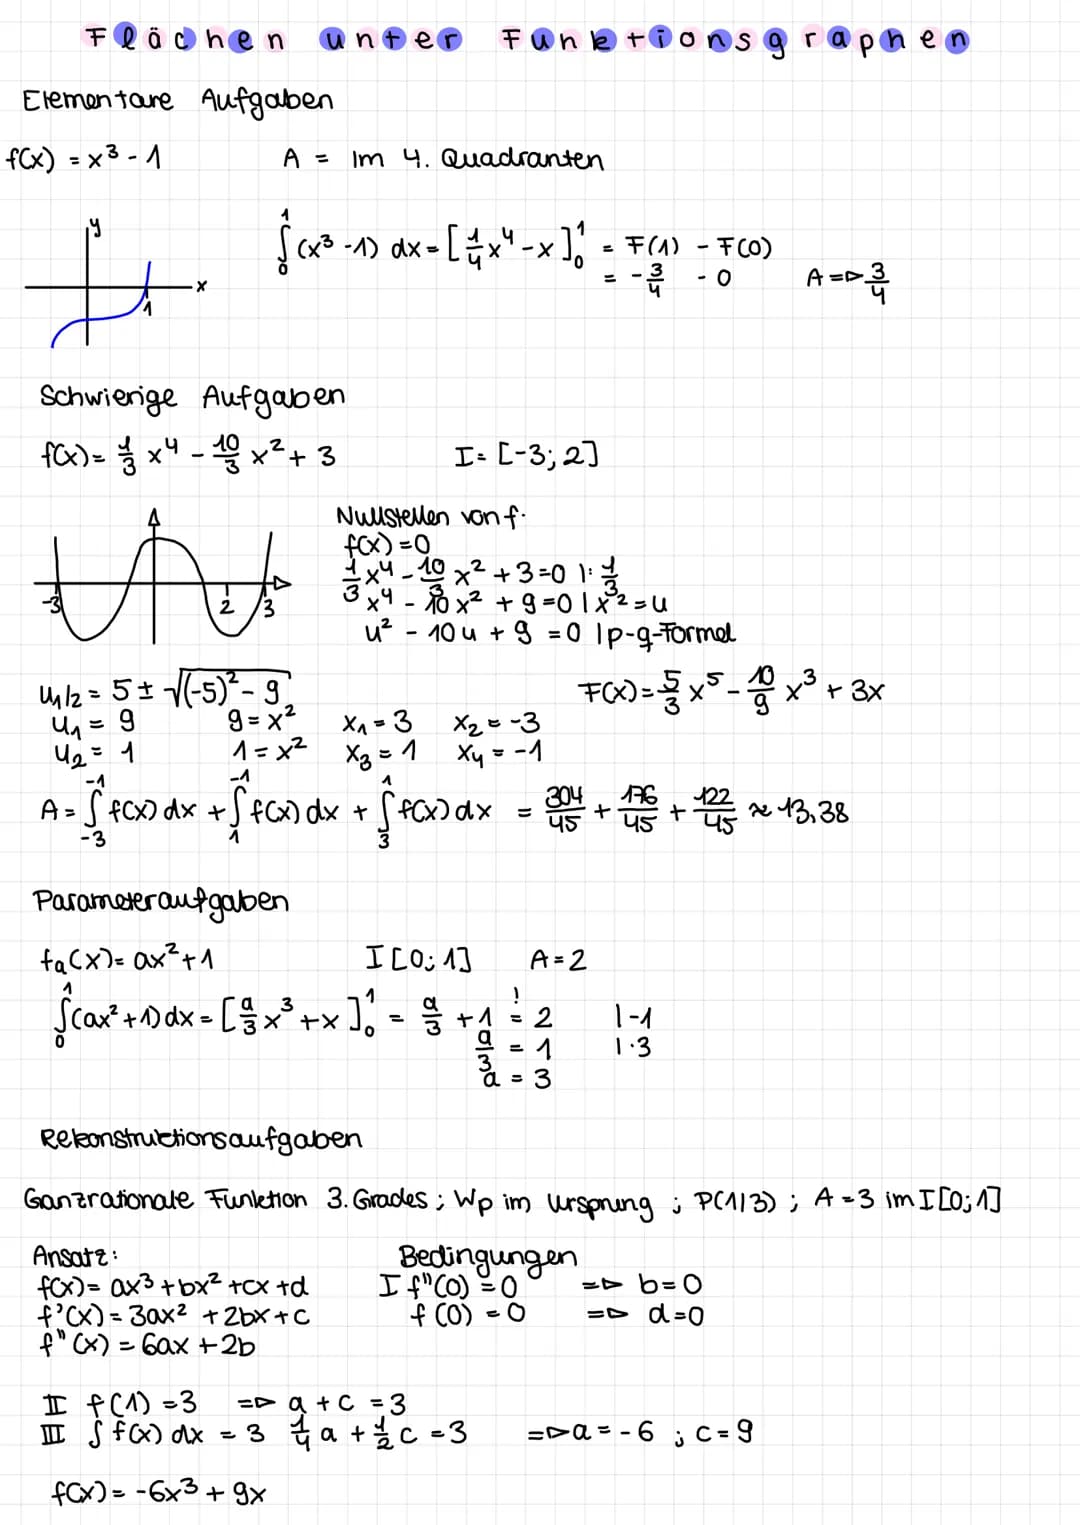 Flächen unter Funktionsgraphen
Elementare Aufgaben
f(x) = x³ - 1 A = Im 4. Quadranten
y
x
1
∫₀¹ (x³ - 1) dx = [1/4 x⁴ - x]₀¹ = F(1) - F(0)
= - 3/4 - 0 A => 3/4
Schwierige Aufgaben
f(x) = 1/3 x⁴ - 10/3 x² + 3 I = [-3; 2]
-3 2 3
Nullstellen von f.
f(x) = 0
1/3 x⁴ - 10/3 x² + 3 = 0 |: 1/3
x⁴ - 10x² + 9 = 0 | x² = u
u² - 10u + 9 = 0 | p-q-Formel
u1/2 = 5 ± √((-5)² - 9) F(x) = 5/3 x⁵ - 10/9 x³ + 3x
u₁ = 9 9 = x² x₁ = 3 x₂ = -3
u₂ = 1 1 = x² x₃ = 1 x₄ = -1
A = ∫₋₃⁻¹ f(x) dx + ∫₁⁻¹ f(x) dx + ∫₃¹ f(x) dx = 304/45 + 176/45 + 122/45 ≈ 13,38
Parameteraufgaben
fₐ(x) = ax² + 1 I [0; 1] A = 2
∫₀¹ (ax² + 1) dx = [a/3 x³ + x]₀¹ = a/3 + 1 =! 2 | -1
a/3 = 1 | ·3
a = 3
Rekonstruktionsaufgaben
Ganzrationale Funktion 3. Grades ; Wp im Ursprung ; P(1|3) ; A = 3 im I [0; 1]
Ansatz: Bedingungen
f(x) = ax³ + bx² + cx + d I f"(0) = 0 => b = 0
f'(x) = 3ax² + 2bx + c f(0) = 0 => d = 0
f"(x) = 6ax + 2b
II f(1) = 3 => a + c = 3
III ∫ f(x) dx = 3 1/4 a + 1/2 c = 3 => a = -6 ; c = 9
f(x) = -6x³ + 9x